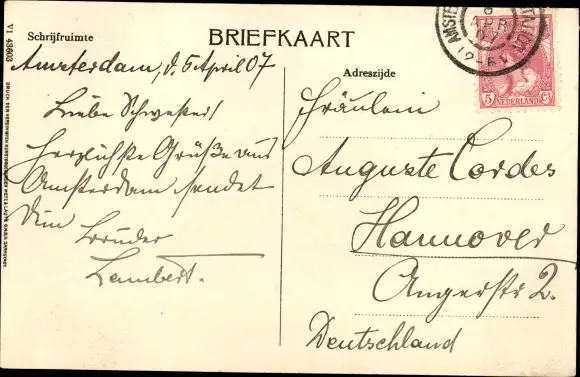 VI 43603
Schrijfruimte
BRIEFKAART
Adreszijde
Amsterdam, d. 5 April 07
Liebe Schwester!
Herzlichste Grüße aus
Amsterdam sendet
Dein Bruder
Lambert.
Fräulein
Auguste Cordes
Hannover
Angerstr 2.
Deutschland
6
APR
07
12-
5 Ct
NEDERLAND